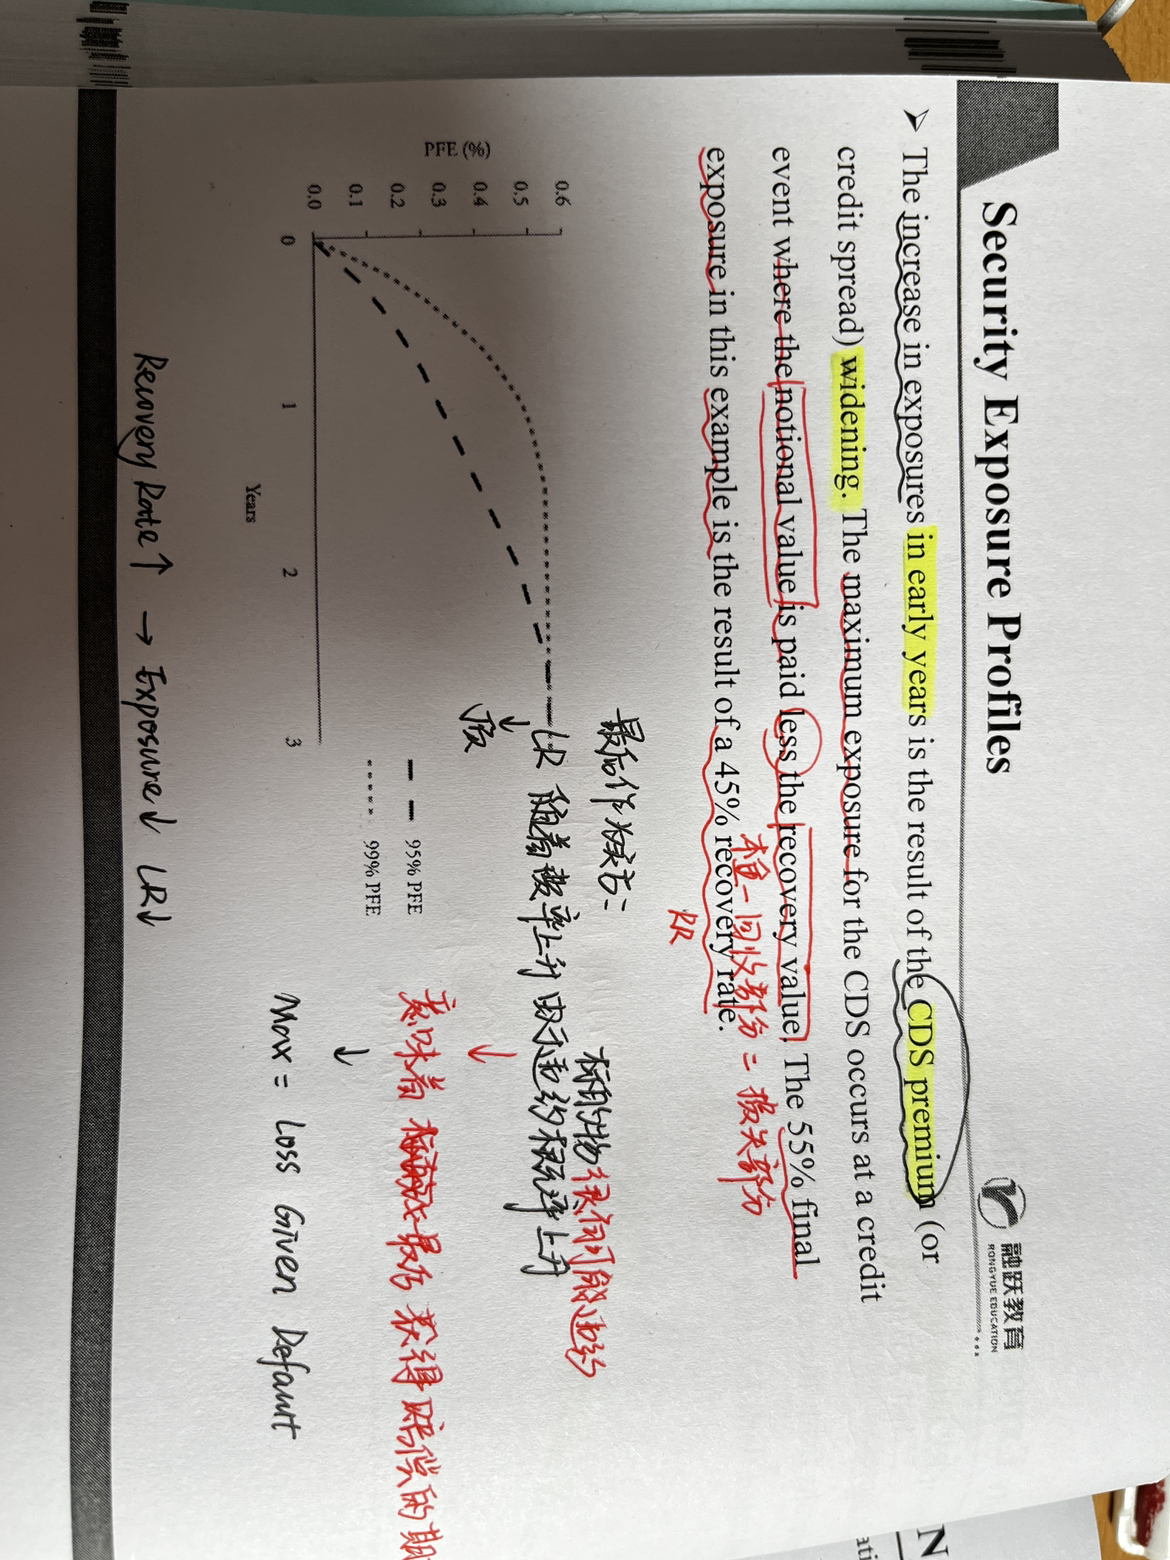 Security Exposure Profiles
融跃教育
RONGYUE EDUCATION
➢ The increase in exposures in early years is the result of the CDS premium (or
credit spread) widening. The maximum exposure for the CDS occurs at a credit
event where the notional value is paid less the recovery value. The 55% final
本金－回收部分 = 损失部分
exposure in this example is the result of a 45% recovery rate.
RR
最后作为卖方:
标的物很有可能违约
PFE (%)
0.6
0.5
0.4
0.3
0.2
0.1
0.0
0
1
2
3
Years
95% PFE
99% PFE
LR 随着费率上升 表示违约概率上升
意味着 最后 获得赔偿的期
Max = Loss Given Default
Recovery Rate↑ → Exposure↓ LR↓
N